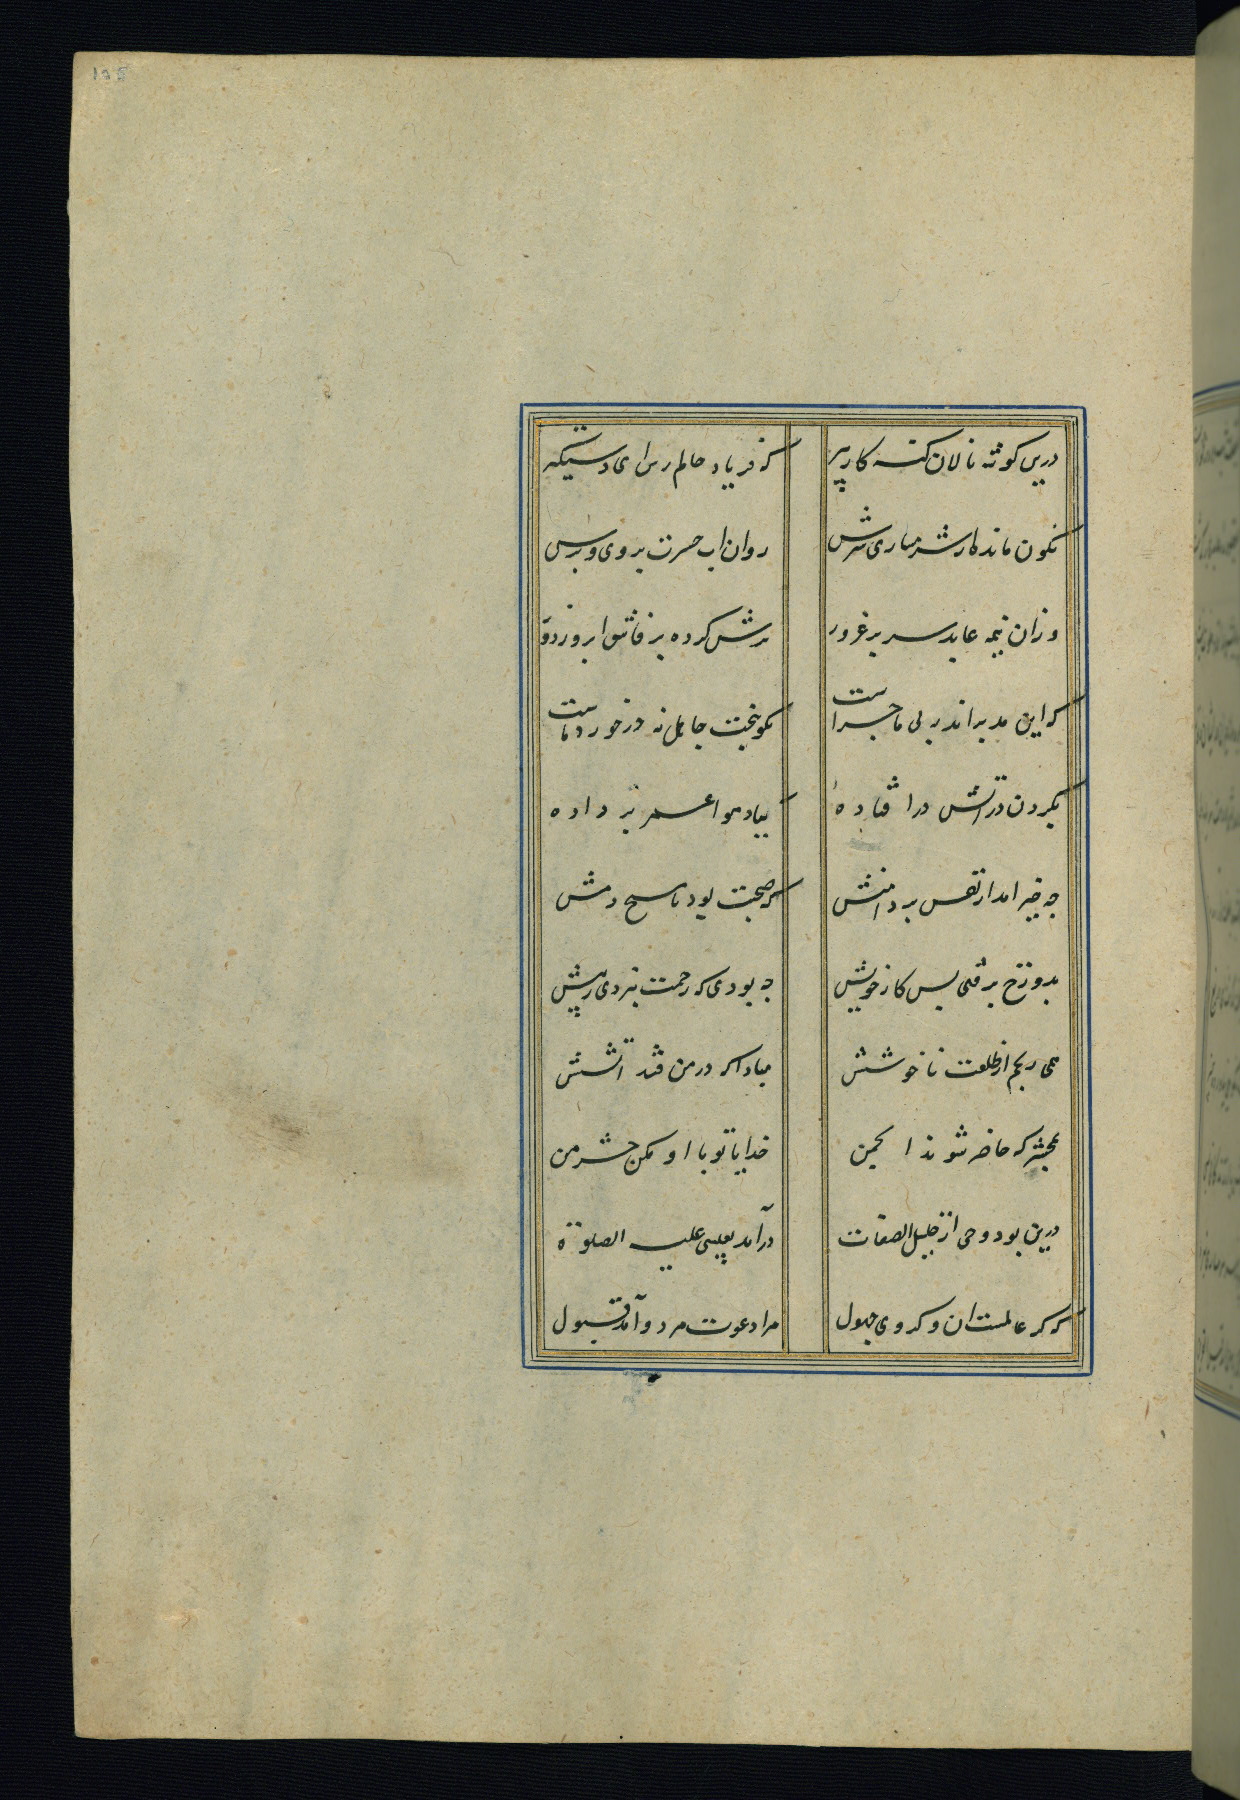 درین گوشه نالان گنه کار پیر که فریاد حالم رس ای دستگیر
نگون مانده از شرمساری سرش روان اب حسرت بروی و برش
وزان نیمه عابد سر پر غرور ترش کرده بر فاسق ابرو ز دور
که این مدبر اندر پی ما چراست نگون بخت جاهل نه در خورد ماست
بگردن در اتش در افتادهٔ بباد هوا عمر بر دادهٔ
چه خیر امد از نفس تر دامنش که صحبت بود با مسیح و منش
چه بودی که زحمت ببردی ز پیش بدوزخ برفتی پس کار خویش
همی رنجم از طلعت ناخوشش مبادا که در من فتد اتشش
بمحشر که حاضر شوند انجمن خدایا تو با او مکن حشر من
درین بود و وحی از جلیل الصفات درآمد بعیسی علیه الصلوة
که گر عالمست ان و گر وی جهول مرا دعوت هر دو آمد قبول